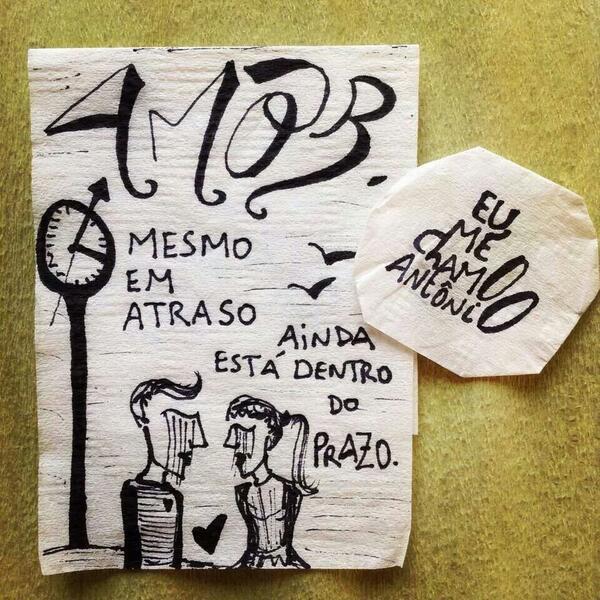 AMOR.
MESMO
EM
ATRASO
AINDA
ESTÁ DENTRO
DO
PRAZO.
EU
ME
CHAMO
ANTÔNIO